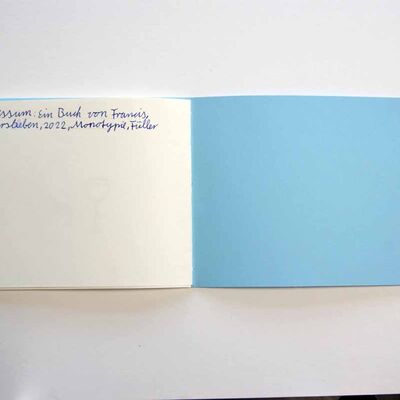 essum: Ein Buch von Francis,
rsleben, 2022, Monotypie, Füller